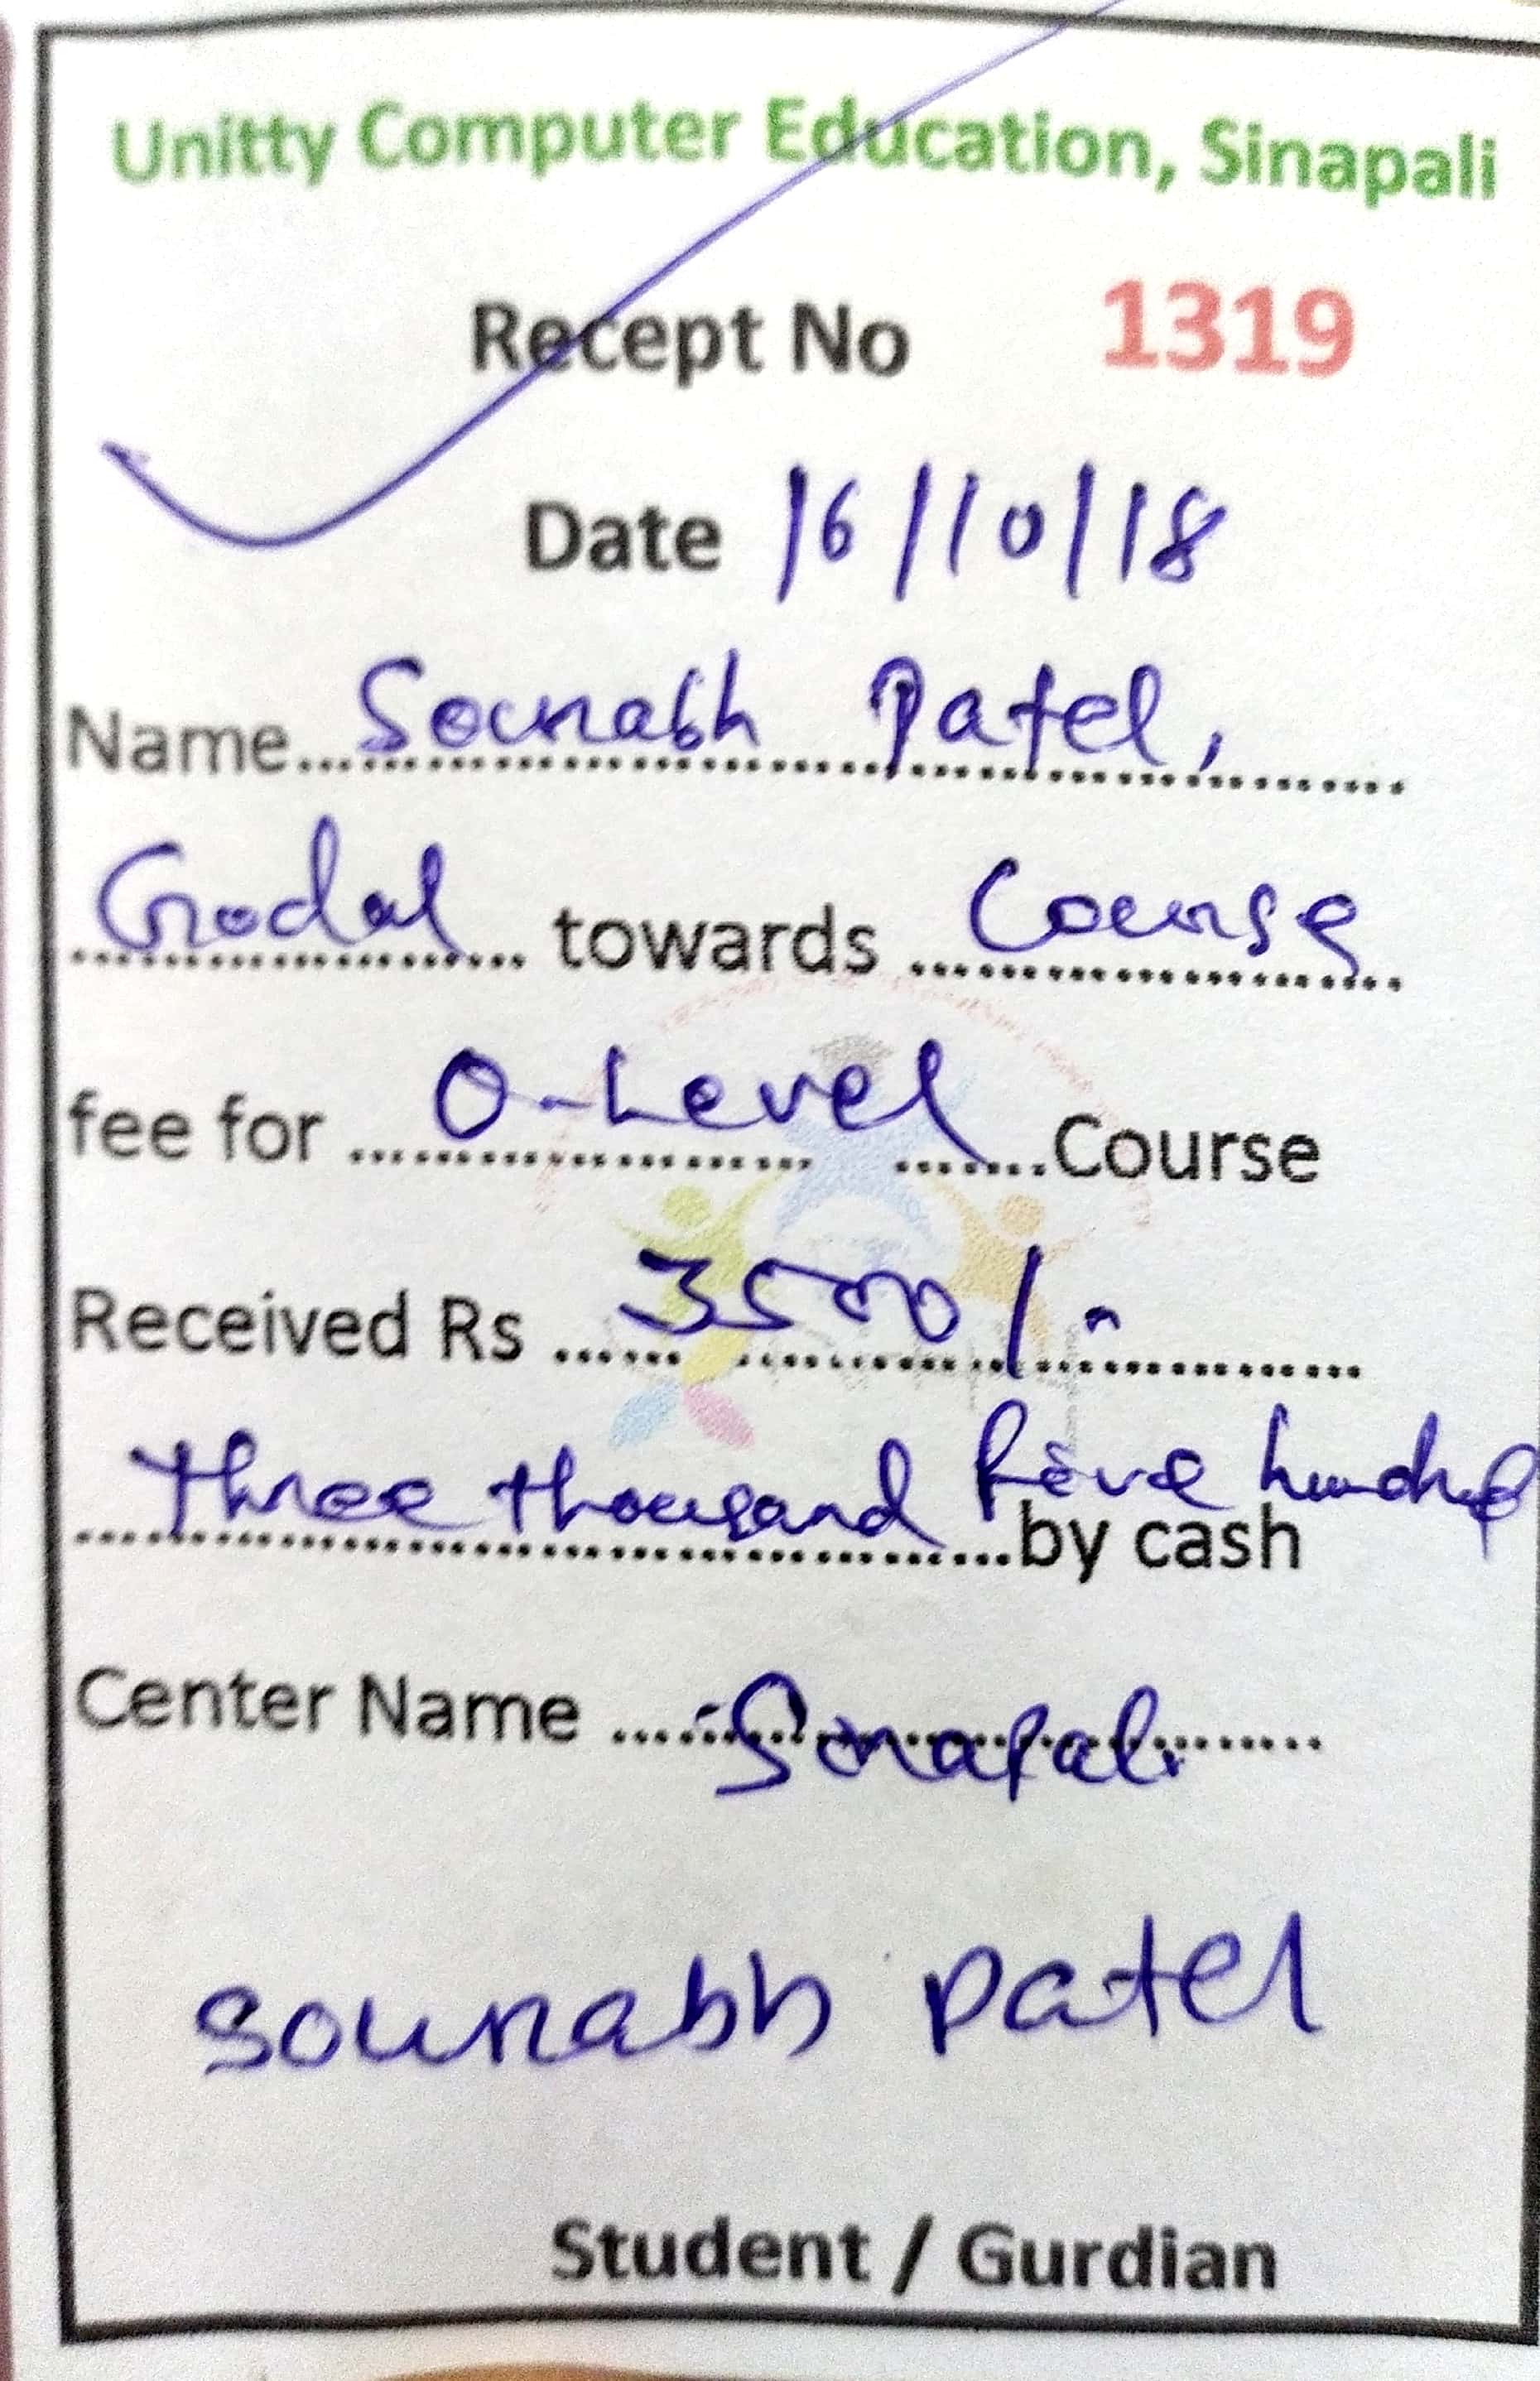 Unitty Computer Education, Sinapali
Recept No 1319
Date 16/10/18
Name Sourabh Patel,
Godal towards Course
fee for O-Level Course
Received Rs 3500/-
Three thousand five hundred by cash
Center Name Sinapali
sourabh patel
Student / Gurdian